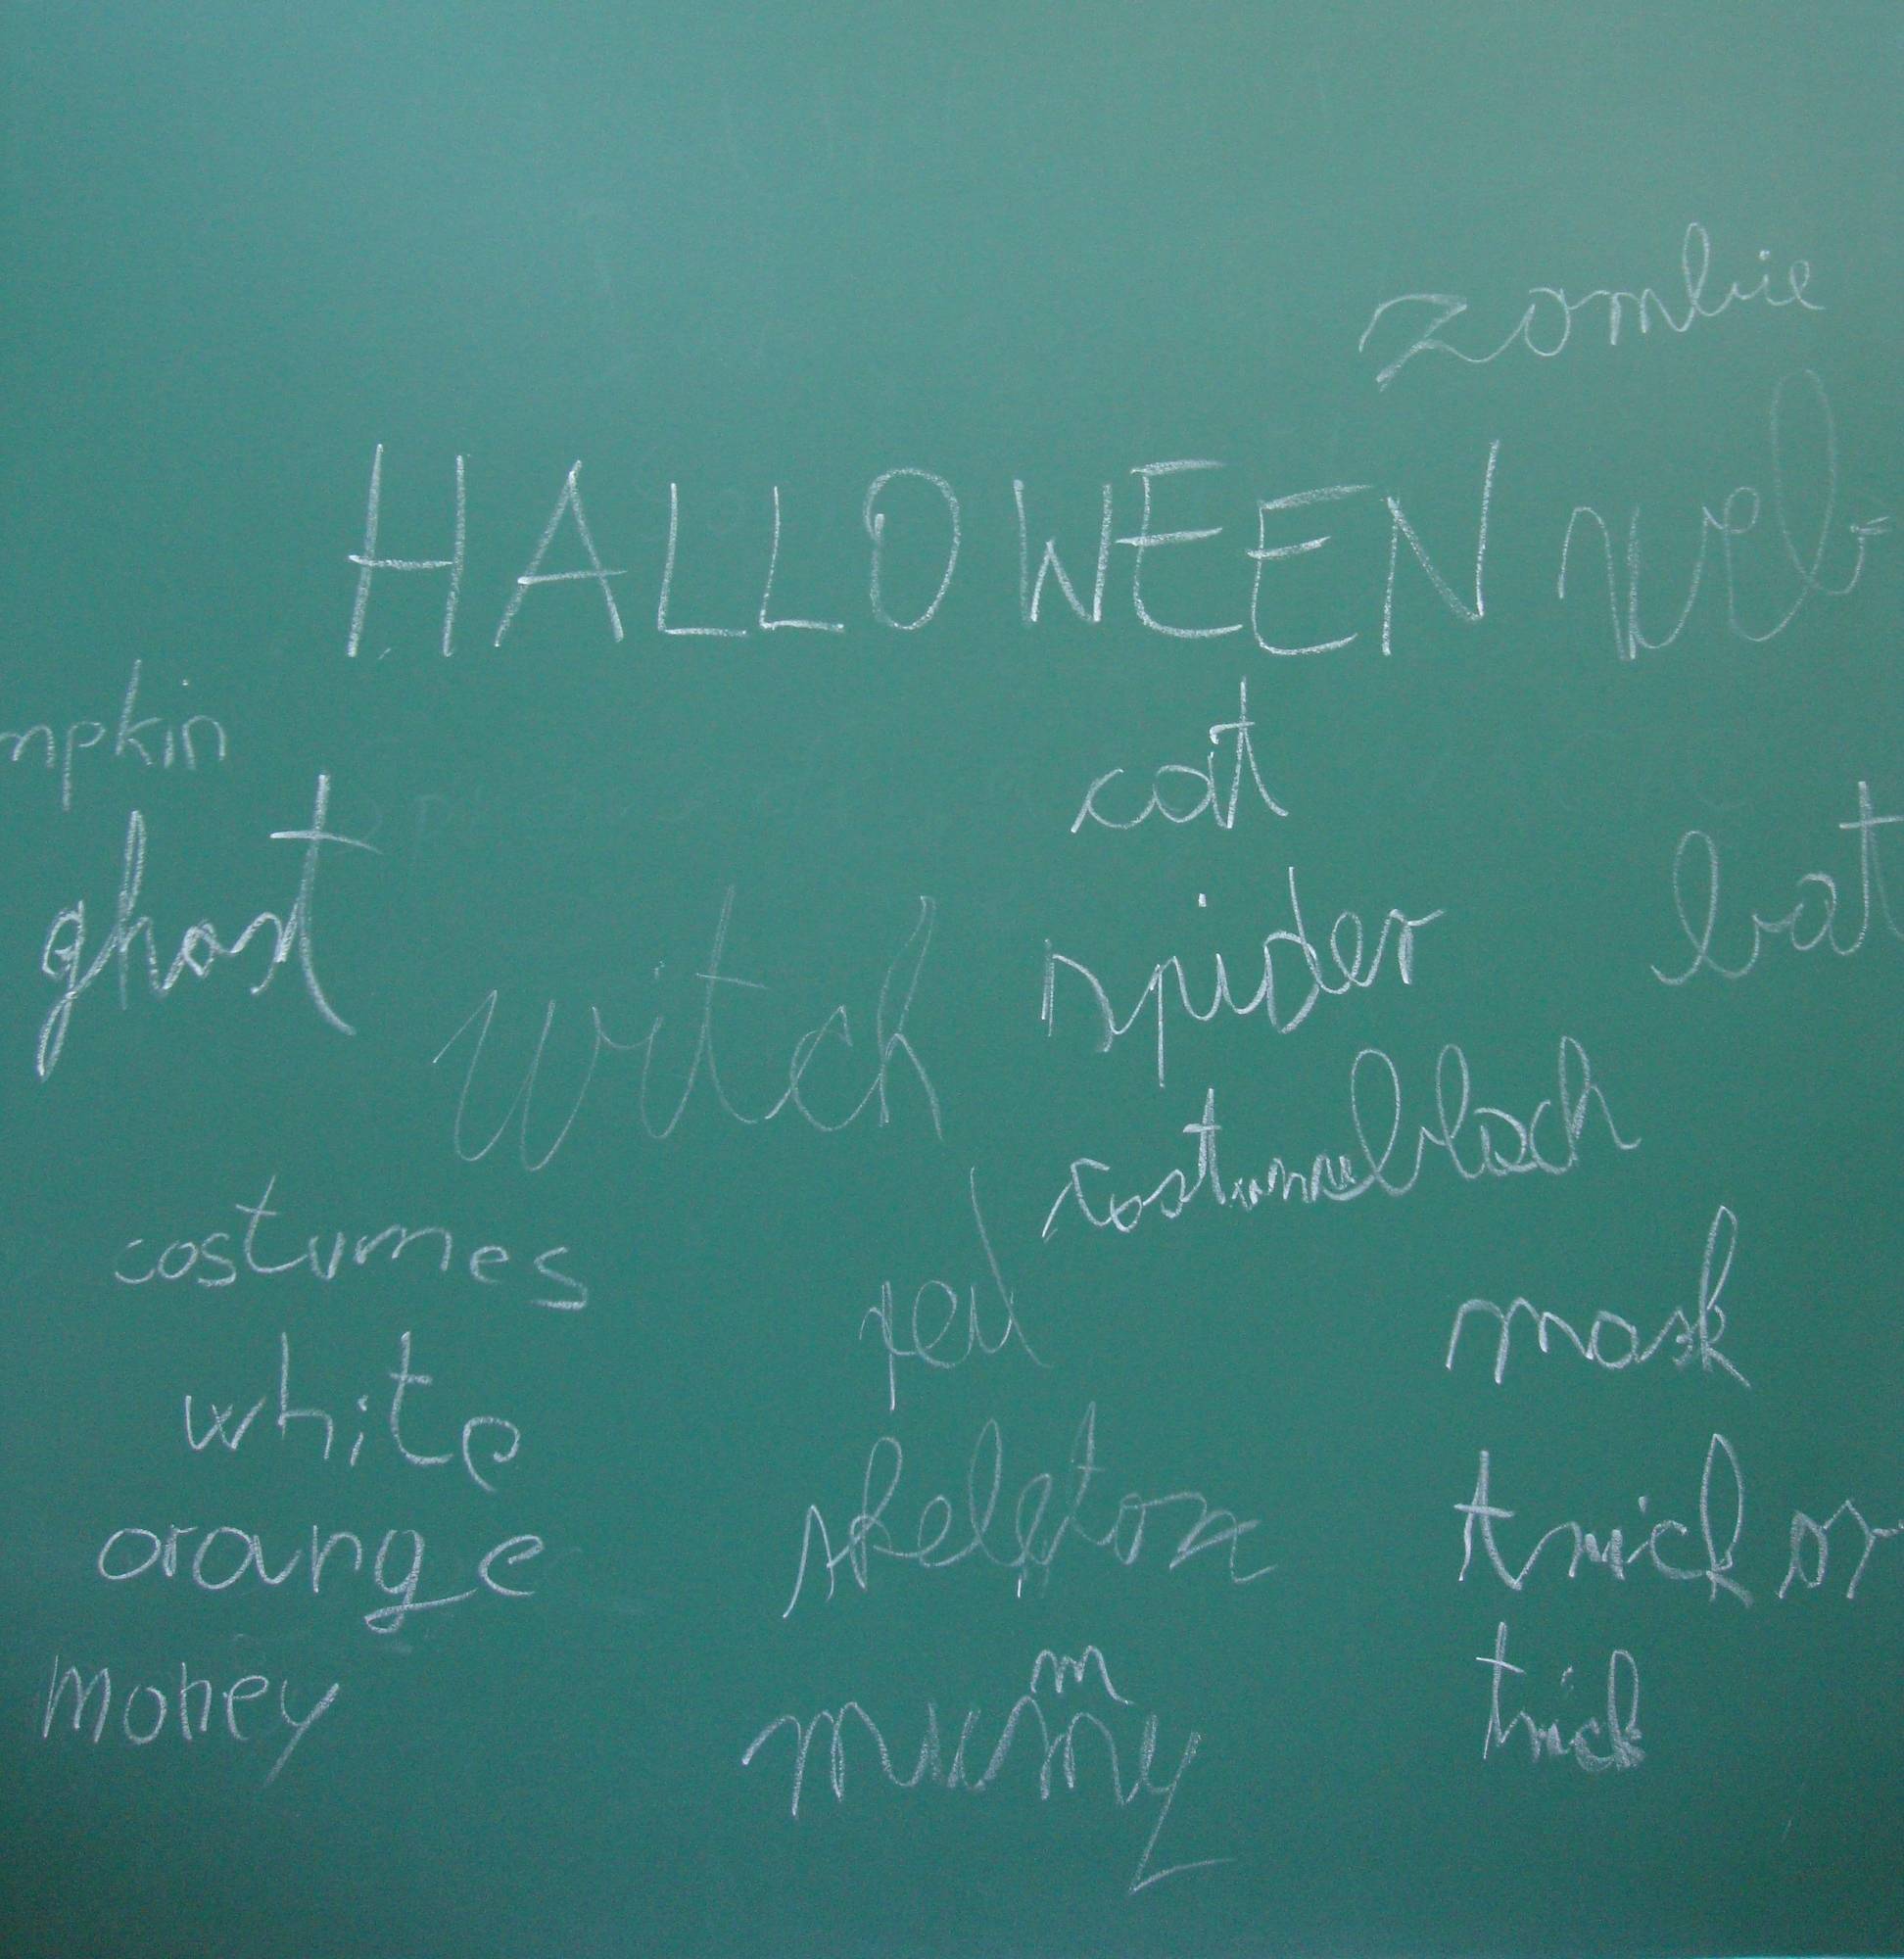 zombie
HALLOWEEN web
mpkin
cat
ghost
bat
spider
witch
costume black
costumes
red
mask
white
skeleton
trick or
orange
money
m
mumy
trick